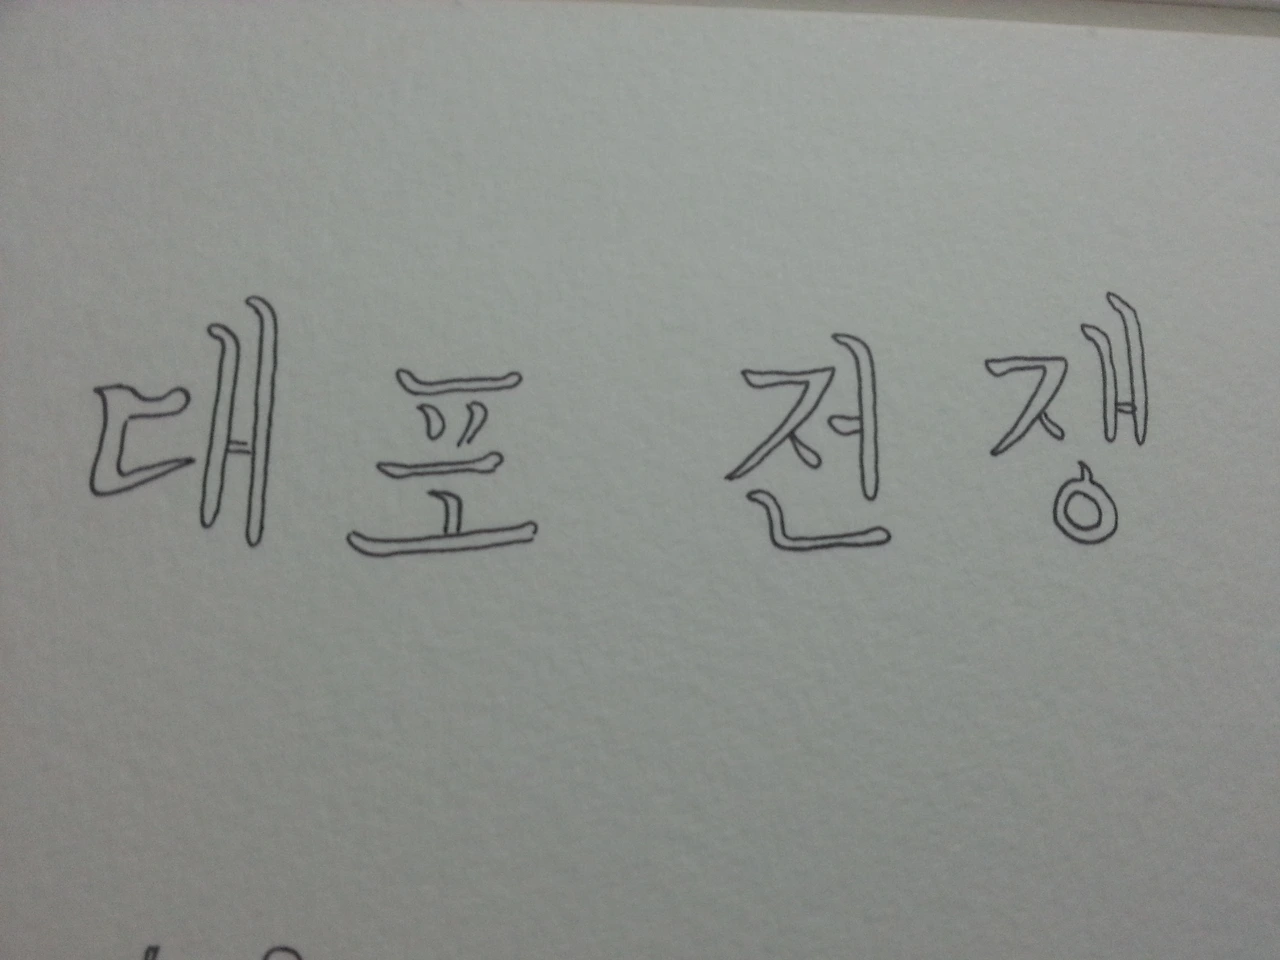 대포 전쟁